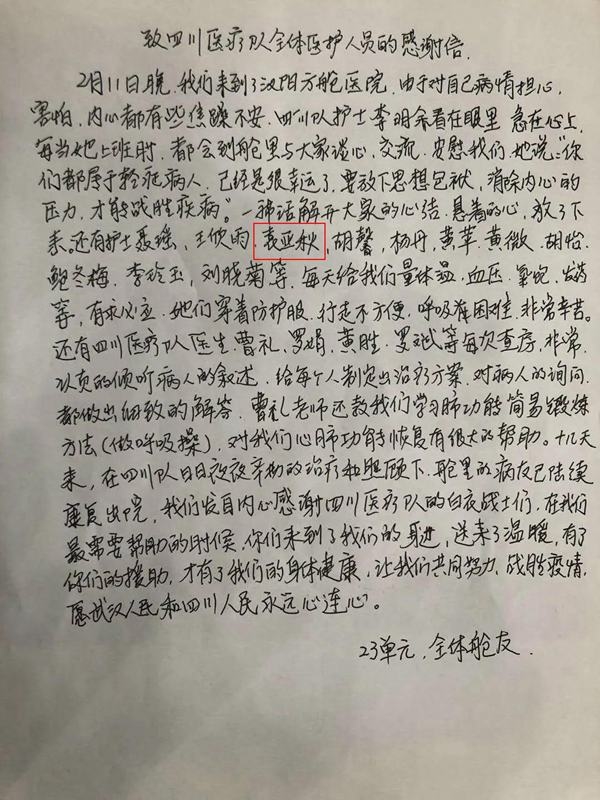 致四川医疗队全体医护人员的感谢信
2月11日晚,我们来到了汉阳方舱医院,由于对自己病情担心,
害怕,内心都有些焦躁不安,四川队护士李明余看在眼里 急在心上,
每当她上班时,都会到舱里与大家谈心、交流,安慰我们,她说:“你
们都属于轻症病人,已经是很幸运了,要放下思想包袱,消除内心的
压力,才能战胜疾病”。一番话解开大家的心结,悬着的心,放了下
来。还有护士聂瑶,王欣雨,袁亚秋,胡馨,杨丹,黄苹,黄微,胡怡
鲍冬梅,李玲玉,刘晓菊等,每天给我们量体温,血压,氧饱,发药
等,有求必应,她们穿着防护服,行走不方便,呼吸难困难,非常辛苦。
还有四川医疗队医生,曹礼,罗娟,黄胜,罗斌等每次查房,非常
认真的倾听病人的叙述,给每个人制定出治疗方案,对病人的询问
都做出细致的解答,曹礼老师还教我们学习肺功能简易锻炼
方法(做呼吸操),对我们心肺功能恢复有很大的帮助。十几天
来,在四川队日日夜夜辛勤的治疗和照顾下,舱里的病友已陆续
康复出院,我们发自内心感谢四川医疗队的白衣战士们,在我们
最需要帮助的时候,你们来到了我们的身边,送来了温暖,有了
你们的援助,才有了我们的身体健康,让我们共同努力,战胜疫情,
愿武汉人民和四川人民永远心连心。
23单元,全体舱友